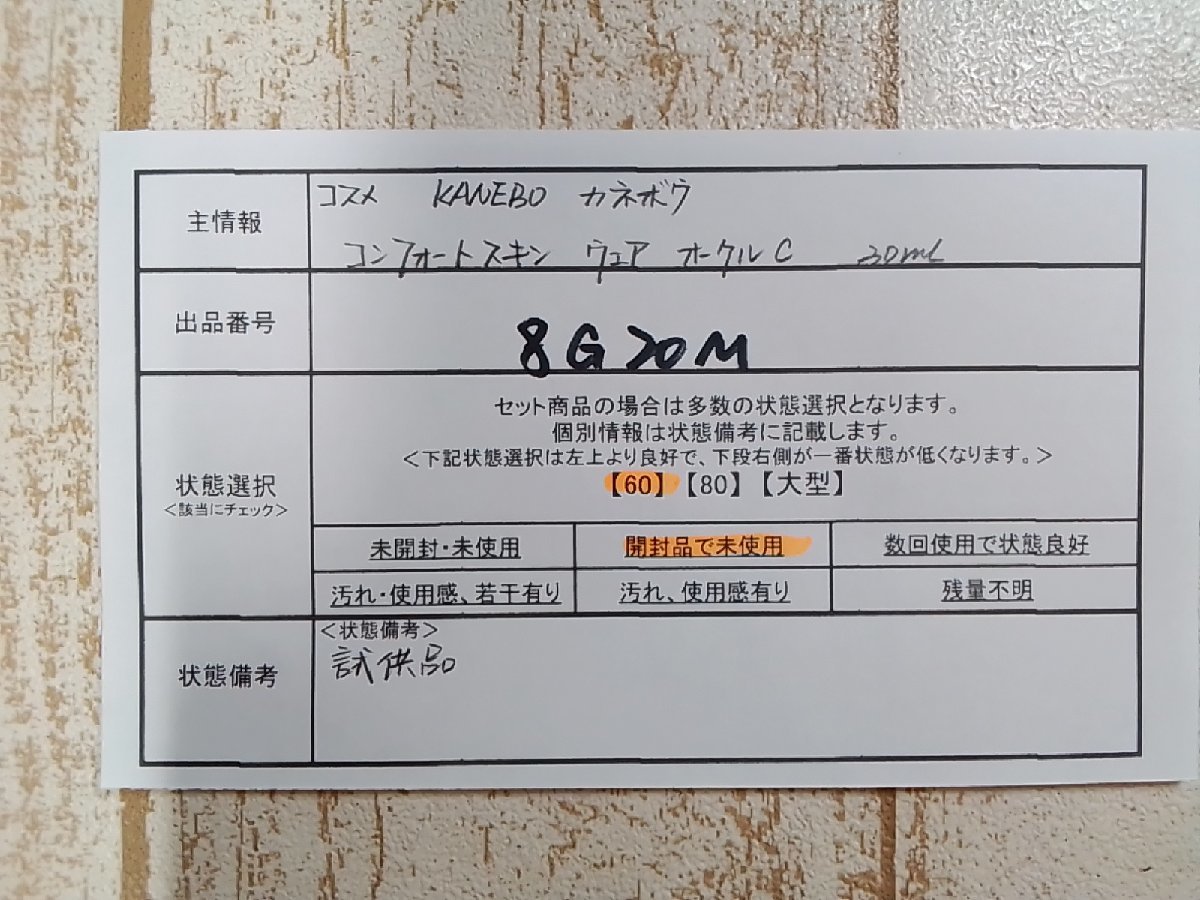 主情報
コスメ KANEBO カネボウ
コンフォートスキン ウェア オークルC 30ml
出品番号
8G20M
状態選択
<該当にチェック>
セット商品の場合は多数の状態選択となります。
個別情報は状態備考に記載します。
<下記状態選択は左上より良好で、下段右側が一番状態が低くなります。>
【60】【80】【大型】
未開封・未使用 開封品で未使用 数回使用で状態良好
汚れ・使用感、若干有り 汚れ、使用感有り 残量不明
状態備考
<状態備考>
試供品